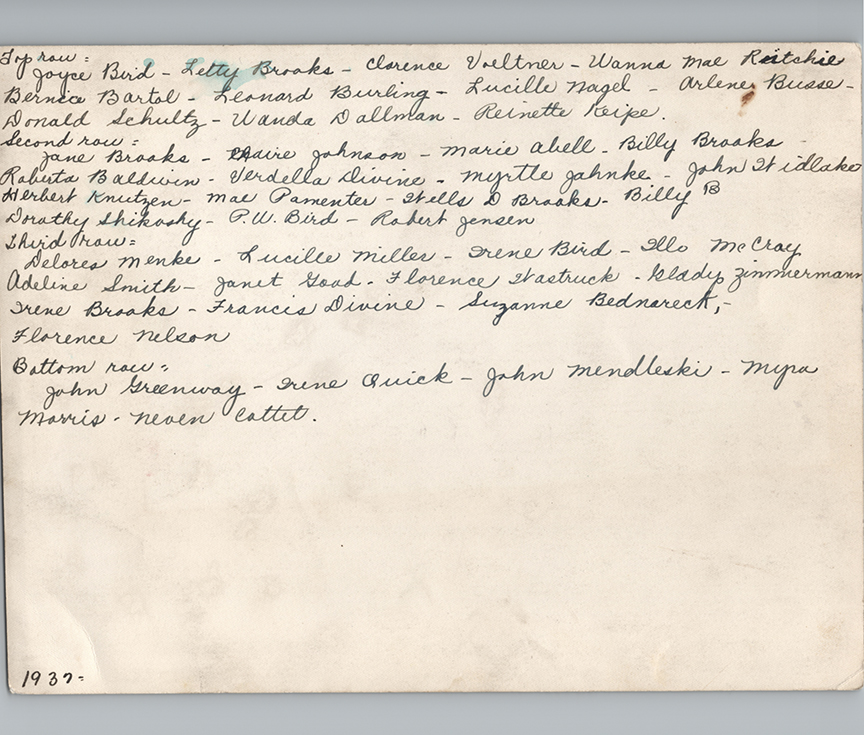 Top row:
Joyce Bird - Letty Brooks - Clarence Voeltner - Wanna Mae Ritchie
Bernice Bartol - Leonard Burling - Lucille Nagel - Arlene Busse -
Donald Schultz - Wanda Dallman - Reinette Keipe.
Second row:
Jane Brooks - Claire Johnson - Marie Abell - Billy Brooks -
Roberta Baldwin - Verdella Divine - Myrtle Jahnke - John Widlake
Herbert Knutzen - Mae Pamenter - Wells D Brooks - Billy B
Dorothy Shikosky - P.W. Bird - Robert Jensen
Third row:
Delores Menke - Lucille Miller - Irene Bird - Illo McCray
Adeline Smith - Janet Good - Florence Wastruck - Glady Zimmermann
Irene Brooks - Francis Divine - Suzanne Bednareck, -
Florence Nelson
Bottom row:
John Greenway - Irene Quick - John Mendleski - Myra
Morris - Neven Cottet.
1937-